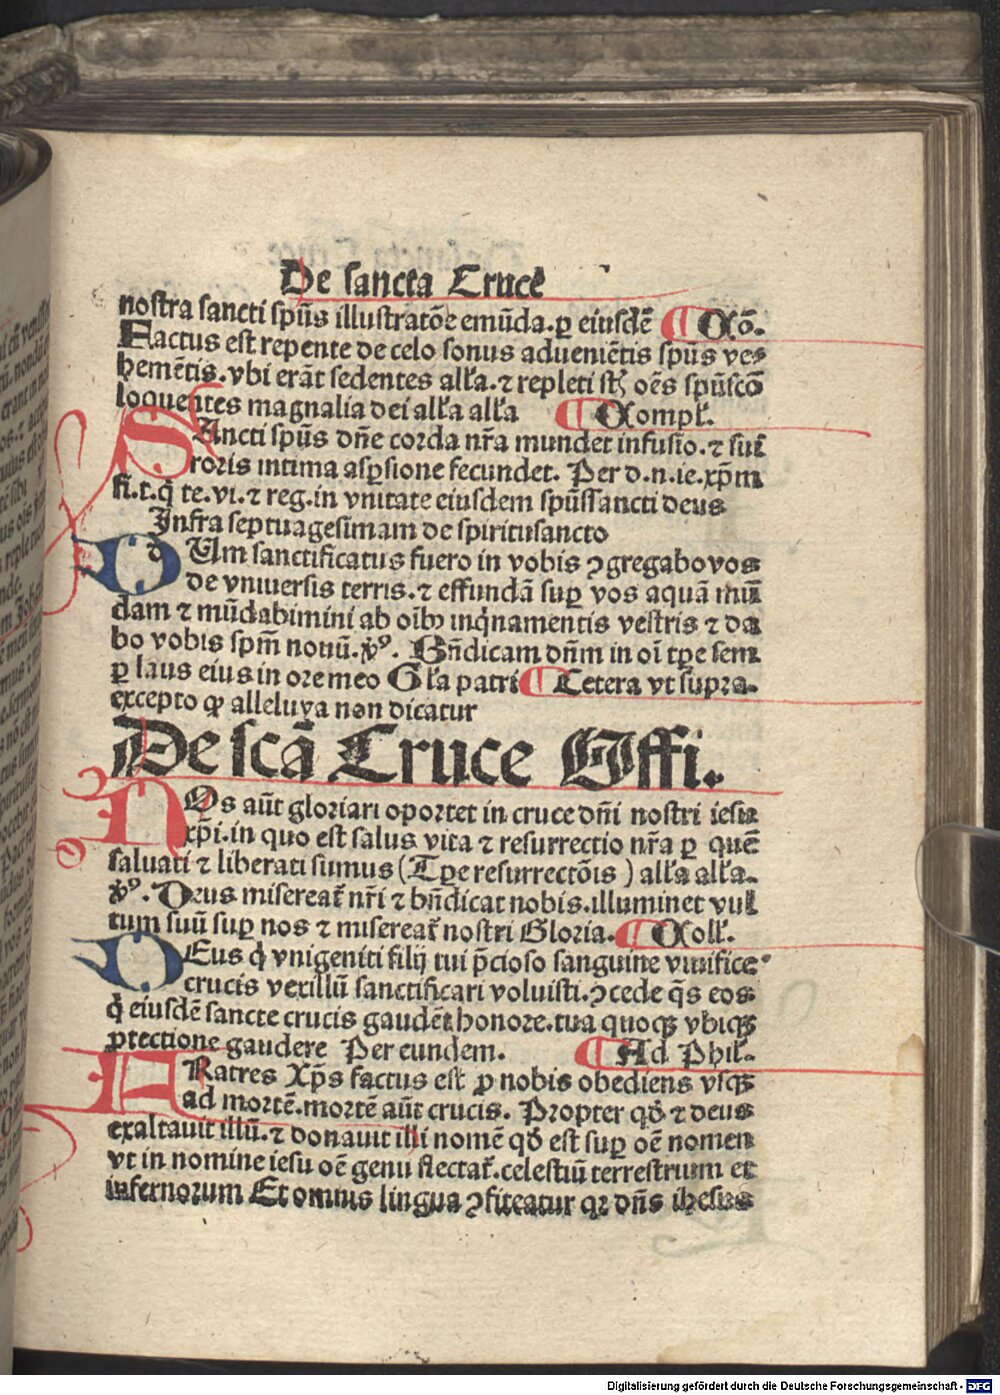 De sancta Cruce
nostra sancti spūs illustratōe emūda. ꝑ eiusdē Cō.
Factus est repente de celo sonus adueniētis spūs ve⸗
hemētis. vbi erāt sedentes alľa. ⁊ repleti sť oēs spūscō
loquentes magnalia dei alľa alľa Compľ.
SAncti spūs dn̄e corda nr̄a mundet infusio. ⁊ sui
roris intima aspersione fecundet. Per d. n. ie. xp̄m
fi. t. q̇ te. vi. ⁊ reg. in vnitate eiusdem spūssancti deus
Infra septuagesimam de spiritusancto
DUm sanctificatus fuero in vobis ꝯgregabo vos
de vniuersis terris. ⁊ effundā suꝑ vos aquā mū
dam ⁊ mūdabimini ab oībꝫ inq̇namentis vestris ⁊ da
bo vobis spm̄ nouū. ꝟꝰ. Bn̄dicam dn̄m in oī tꝑe sem
ꝑ laus eius in ore meo Gľa patri Cetera vt supra.
excepto ꝙ alleluya non dicatur
De scā Cruce Offi.
NOs aūt gloriari oportet in cruce dn̄i nostri iesu
xp̄i. in quo est salus vita ⁊ resurrectio nr̄a ꝑ quē
saluati ⁊ liberati sumus (Tꝑe resurrectōis) alľa alľa.
ꝟꝰ. Deus misereať nr̄i ⁊ bn̄dicat nobis. illuminet vul
tum suū suꝑ nos ⁊ misereať nostri Gloria. Colľ.
DEus q̇ vnigeniti filij tui p̄cioso sanguine viuifice
crucis vexillū sanctificari voluisti. ꝯcede q̄s eos
q̇ eiusdē sancte crucis gaudēt honore. tua quoqꝫ vbiqꝫ
ꝓtectione gaudere Per eundem. Ad Phiľ.
FRatres Xp̄s factus est ꝓ nobis obediens vsqꝫ
ad mortē. mortē aūt crucis. Propter qď ⁊ deus
exaltauit illū. ⁊ donauit illi nomē qď est suꝑ oē nomen
vt in nomine iesu oē genu flectať. celestiū terrestrium et
infernorum Et omnis lingua ꝯfiteatur qꝛ dn̄s ihesus
Digitalisierung gefördert durch die Deutsche Forschungsgemeinschaft - DFG